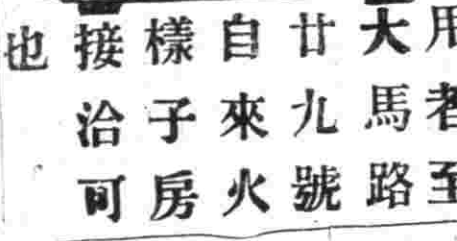 用者至
大馬路
廿九號
自來火
樣子房
接洽可
也